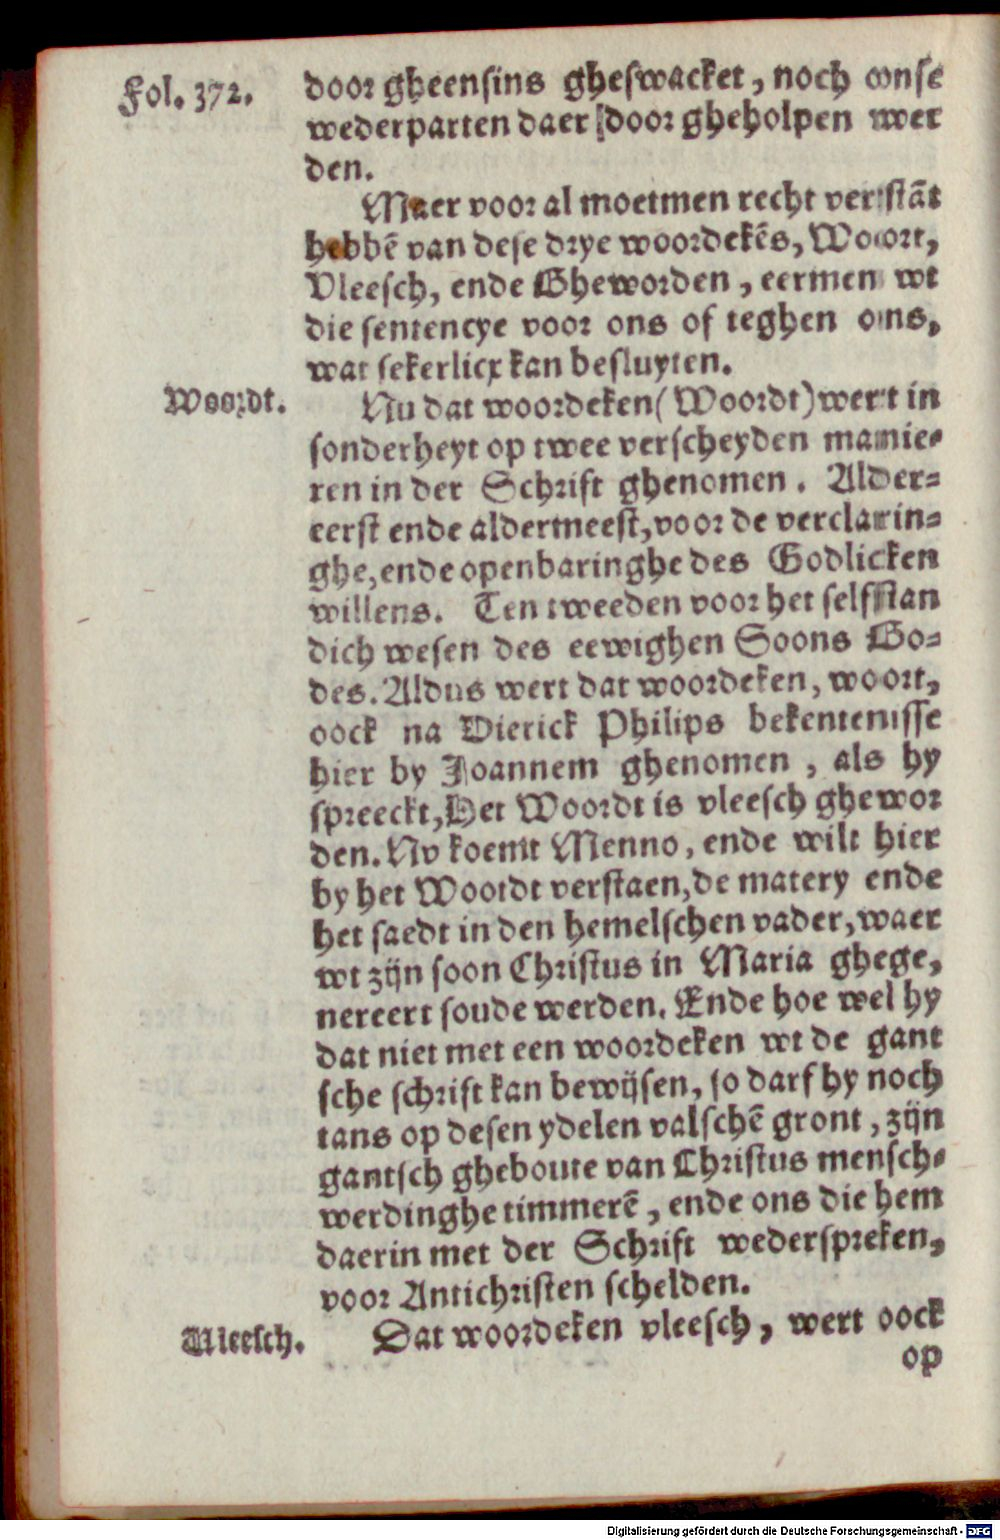 Fol. 372.
door gheensins gheswacket, noch onse
wederparten daer door gheholpen wer
den.
Maer voor al moetmen recht verstãt
hebbẽ van dese drye woordekẽs, Woort,
Vleesch, ende Gheworden, eermen wt
die sentencye voor ons of teghen ons,
wat sekerlicx kan besluyten.
Woordt.
Nu dat woordeken (Woordt) wert in
sonderheyt op twee verscheyden manie-
ren in der Schrift ghenomen. Alder-
eerst ende aldermeest, voor de verclarin-
ghe, ende openbaringhe des Godlicken
willens. Ten tweeden voor het selfstan
dich wesen des eewighen Soons Go-
des. Aldus wert dat woordeken, woort,
oock na Dierick Philips bekentenisse
hier by Joannem ghenomen, als hy
spreeckt, Het Woordt is vleesch ghewor
den. Nv koemt Menno, ende wilt hier
by het Woordt verstaen, de matery ende
het saedt in den hemelschen vader, waer
wt zijn soon Christus in Maria ghege,
nereert soude werden. Ende hoe wel hy
dat niet met een woordeken wt de gant
sche schrift kan bewijsen, so darf hy noch
tans op desen ydelen valschẽ gront, zijn
gantsch gheboute van Christus mensch-
werdinghe timmerẽ, ende ons die hem
daerin met der Schrift wederspreken,
voor Antichristen schelden.
Vleesch.
Dat woordeken vleesch, wert oock
op
Digitalisierung gefördert durch die Deutsche Forschungsgemeinschaft - DFG